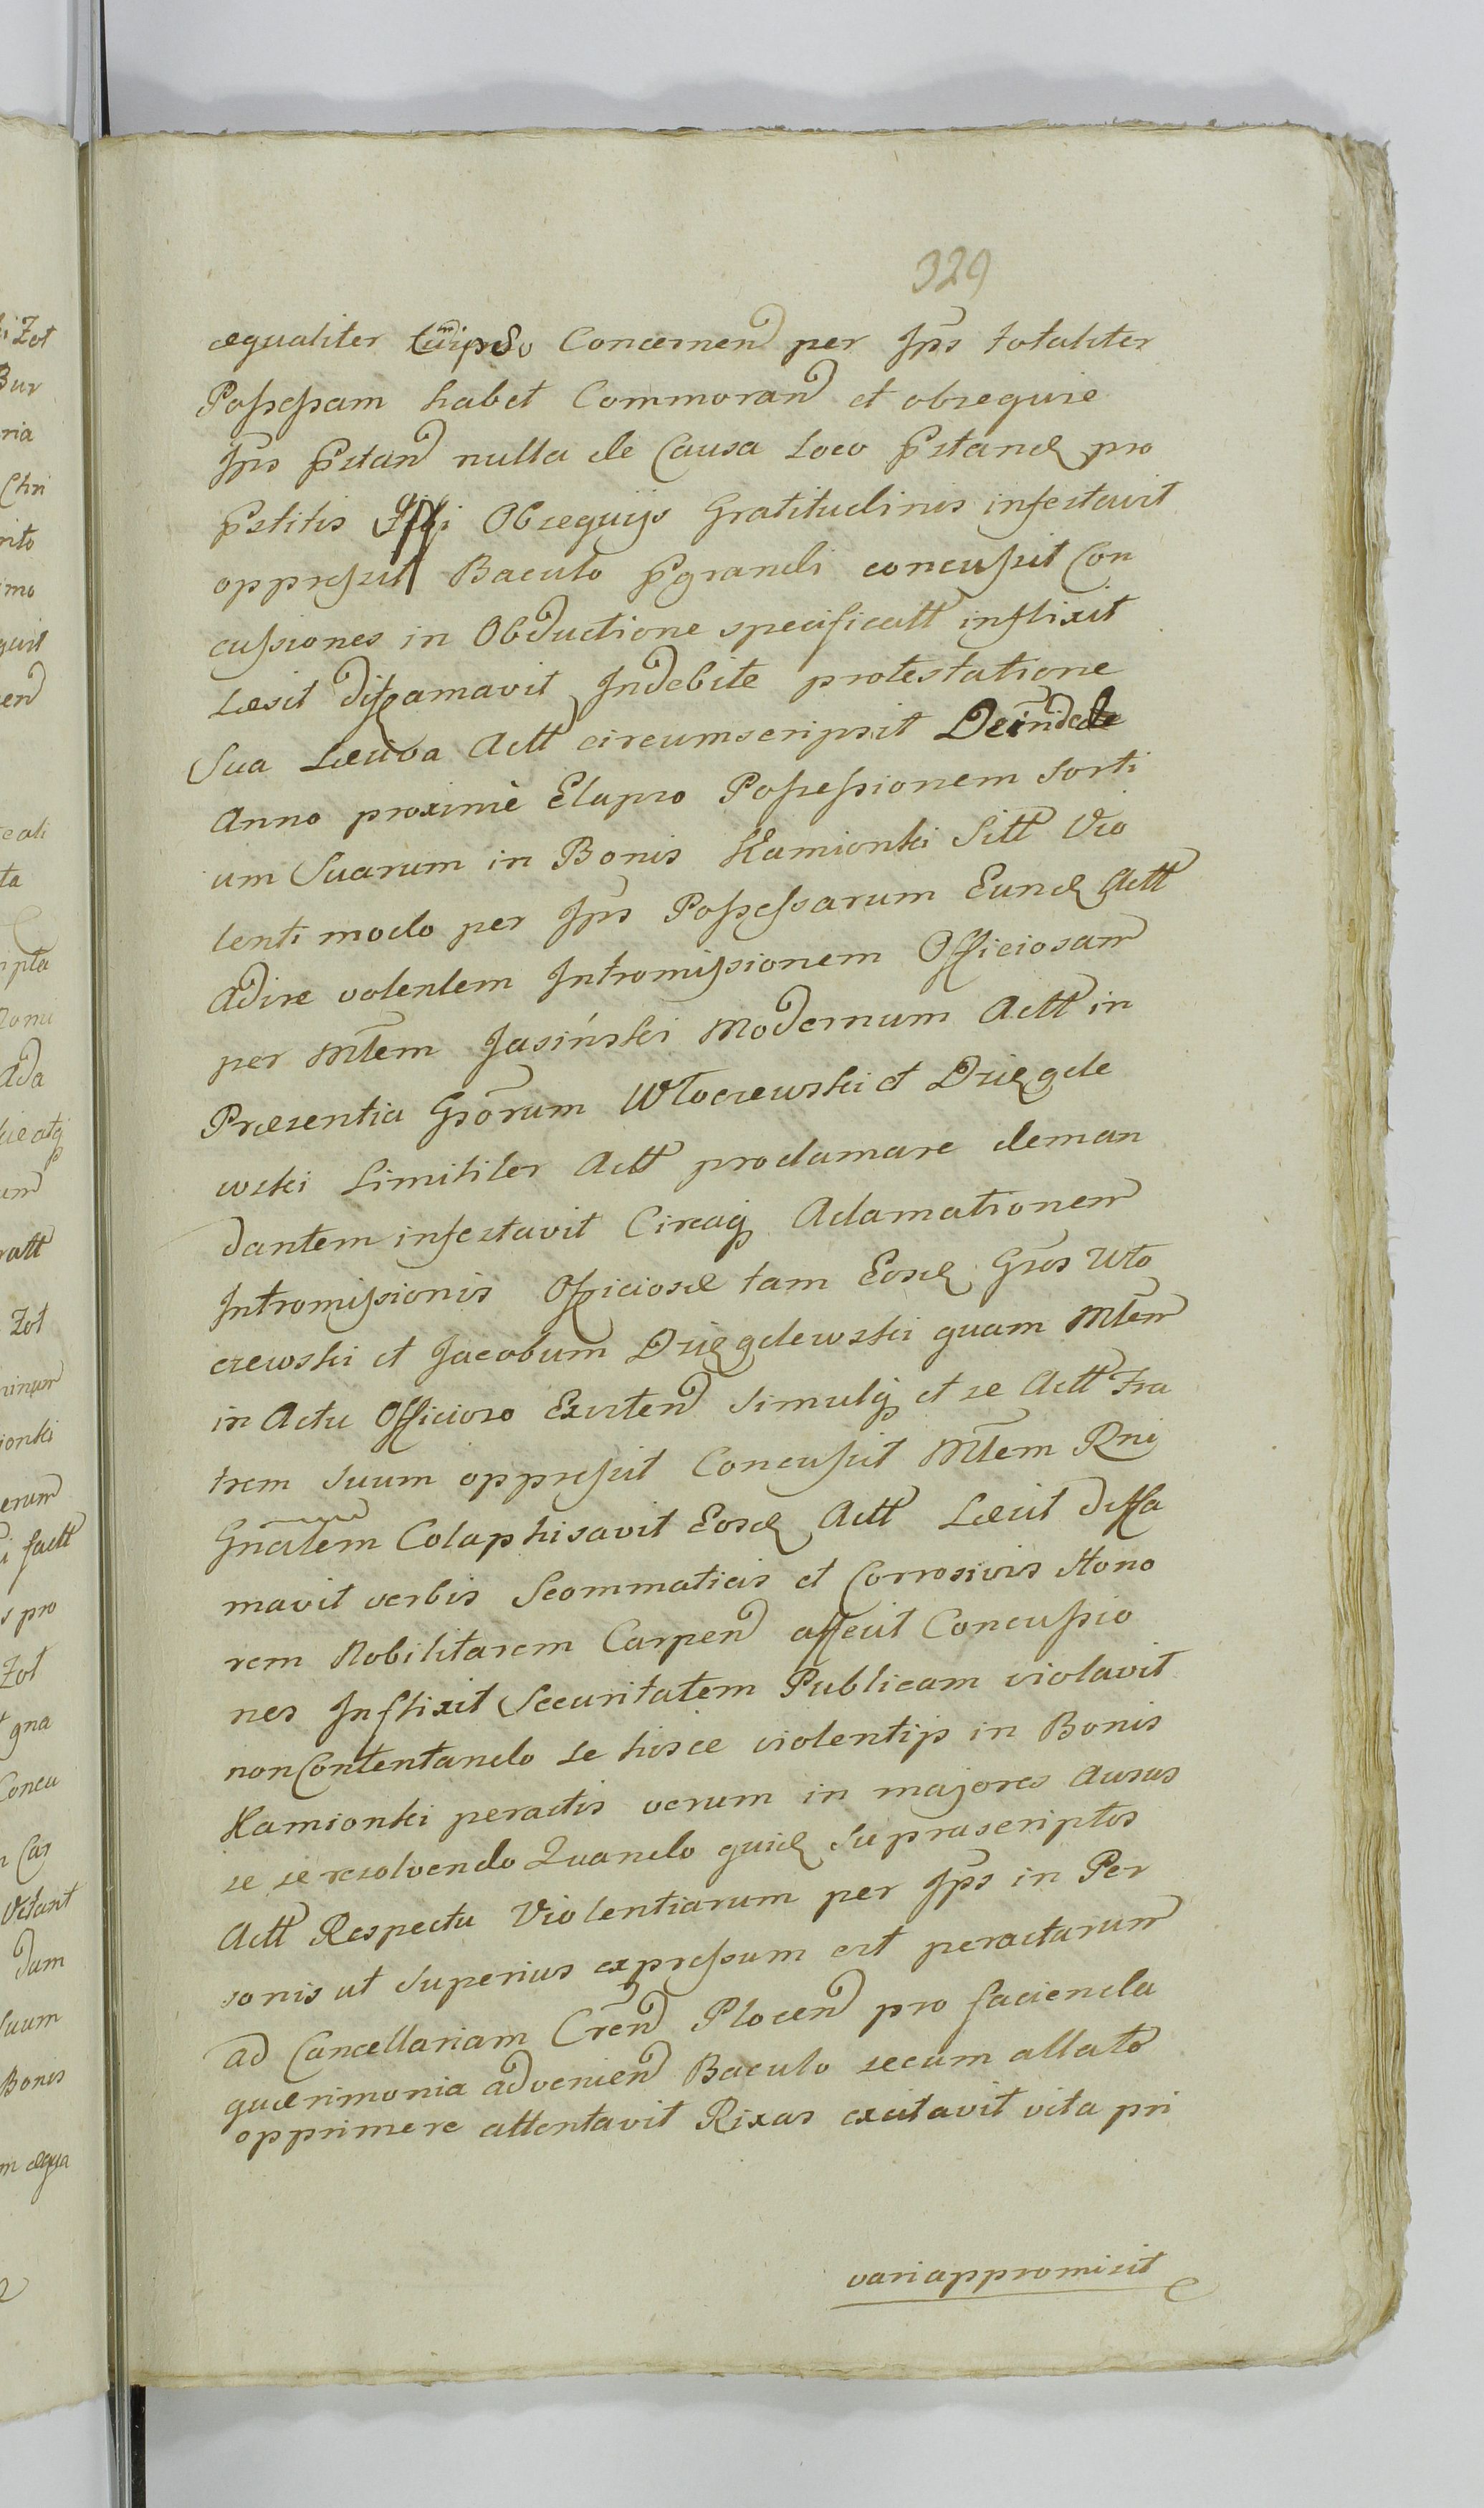 329
æqualiter Cum ipso Concernen̄ per Ips̄ totaliter
Possessam habet Commoran̄ et obsequie
Ips̄ p̄stan̄ nulla de Causa Loco p̄stand pro
p̄stitis Sibi Obsequijs Gratitudinis infestavit
oppressit Baculo p̄grandi concussit Con
cussiones in Obductione specificatt inflixit
Læsit diffamavit Indebite protestatione
Sua Læsiva Actt circumscripsit Deinde
Anno proximè Elapso Possessionem Sorti
um Suarum in Bonis Kamionki Sitt Vio
lenti modo per Ips̄ Possessarum Eund Actt
Adire volentem Intromissionem Officiosam
per Mt̄em Jasiński Modernum Actt in
Præsentia Gsōrum Włoczewski et Dzięgde
wski Similiter Actt proclamare deman
dantem infestavit Circaq Adamationem
Intromissionis Officiosæ tam Eosd Gs̄os Wło
czewski et Jacobum Dzięgdewski quam Mt̄em
in Actu Officioso Existen̄ Simulq et se Actt Fra
trem Suum oppressit Concussit Mt̄em Rni
Gn̄alem Colaphisavit Eosd Actt Læsit diffa
mavit verbis Scommaticis et Corrosivis Hono
rem Nobilitarem Carpen̄ affecit Concussio
nes Inflixit Securitatem Publicam violavit
non Contentando se hisce violentijs in Bonis
Kamionki peractis verum in majores Ausus
se se resolvendo Quando quid Suprascriptos
Actt Respectu Violentiarum per Ips̄ in Per
sonis ut Superius expressum est peractarum
ad Cancellariam Cren̄ Plocen̄ pro facienda
quærimonia advenien̄ Baculo secum allato
opprimere attentavit Rixas excitavit vita pri
vari appromisit